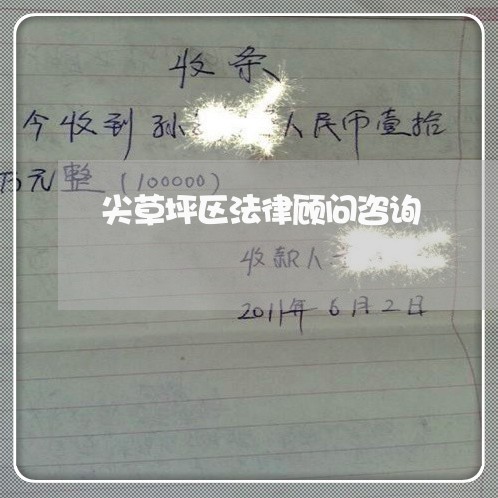 收条
今收到孙 人民币壹拾
万元整(100000)
尖草坪区法律顾问咨询
收款人
2011年6月2日